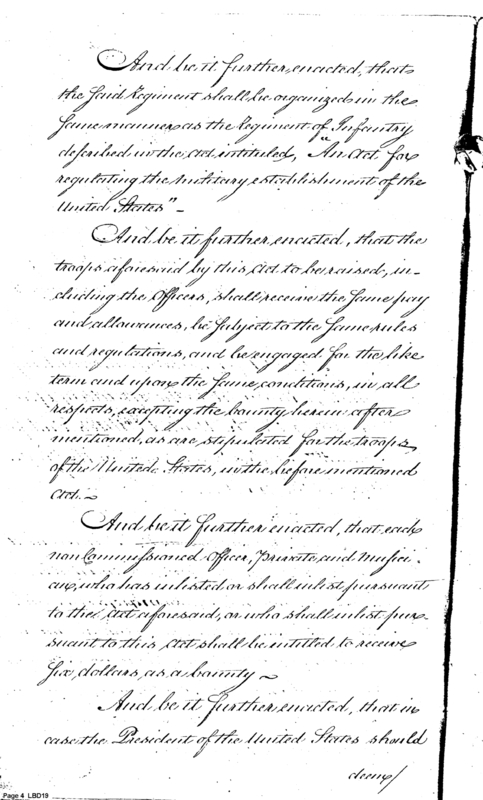 And be it further enacted, that
the said Regiment shall be organized in the
same manner as the Regiment of Infantry
described in the act intituled, "An Act for
regulating the military establishment of the
United States" -
And be it further enacted, that the
troops aforesaid by this Act to be raised, in-
cluding the Officers, shall receive the same pay
and allowances, be subject to the same rules
and regulations, and be engaged for the like
term and upon the same conditions, in all
respects, excepting the bounty herein after
mentioned, as are stipulated for the troops
of the United States, in the before mentioned
Act. ~
And be it further enacted, that each
non Commissioned Officer, Private and Musici-
an, who has inlisted or shall inlist pursuant
to the Act aforesaid, or who shall inlist pur-
suant to this Act shall be intitled to receive
six dollars, as a bounty ~
And be it further enacted, that in
case the President of the United States should
deem/
Page 4 LBD19